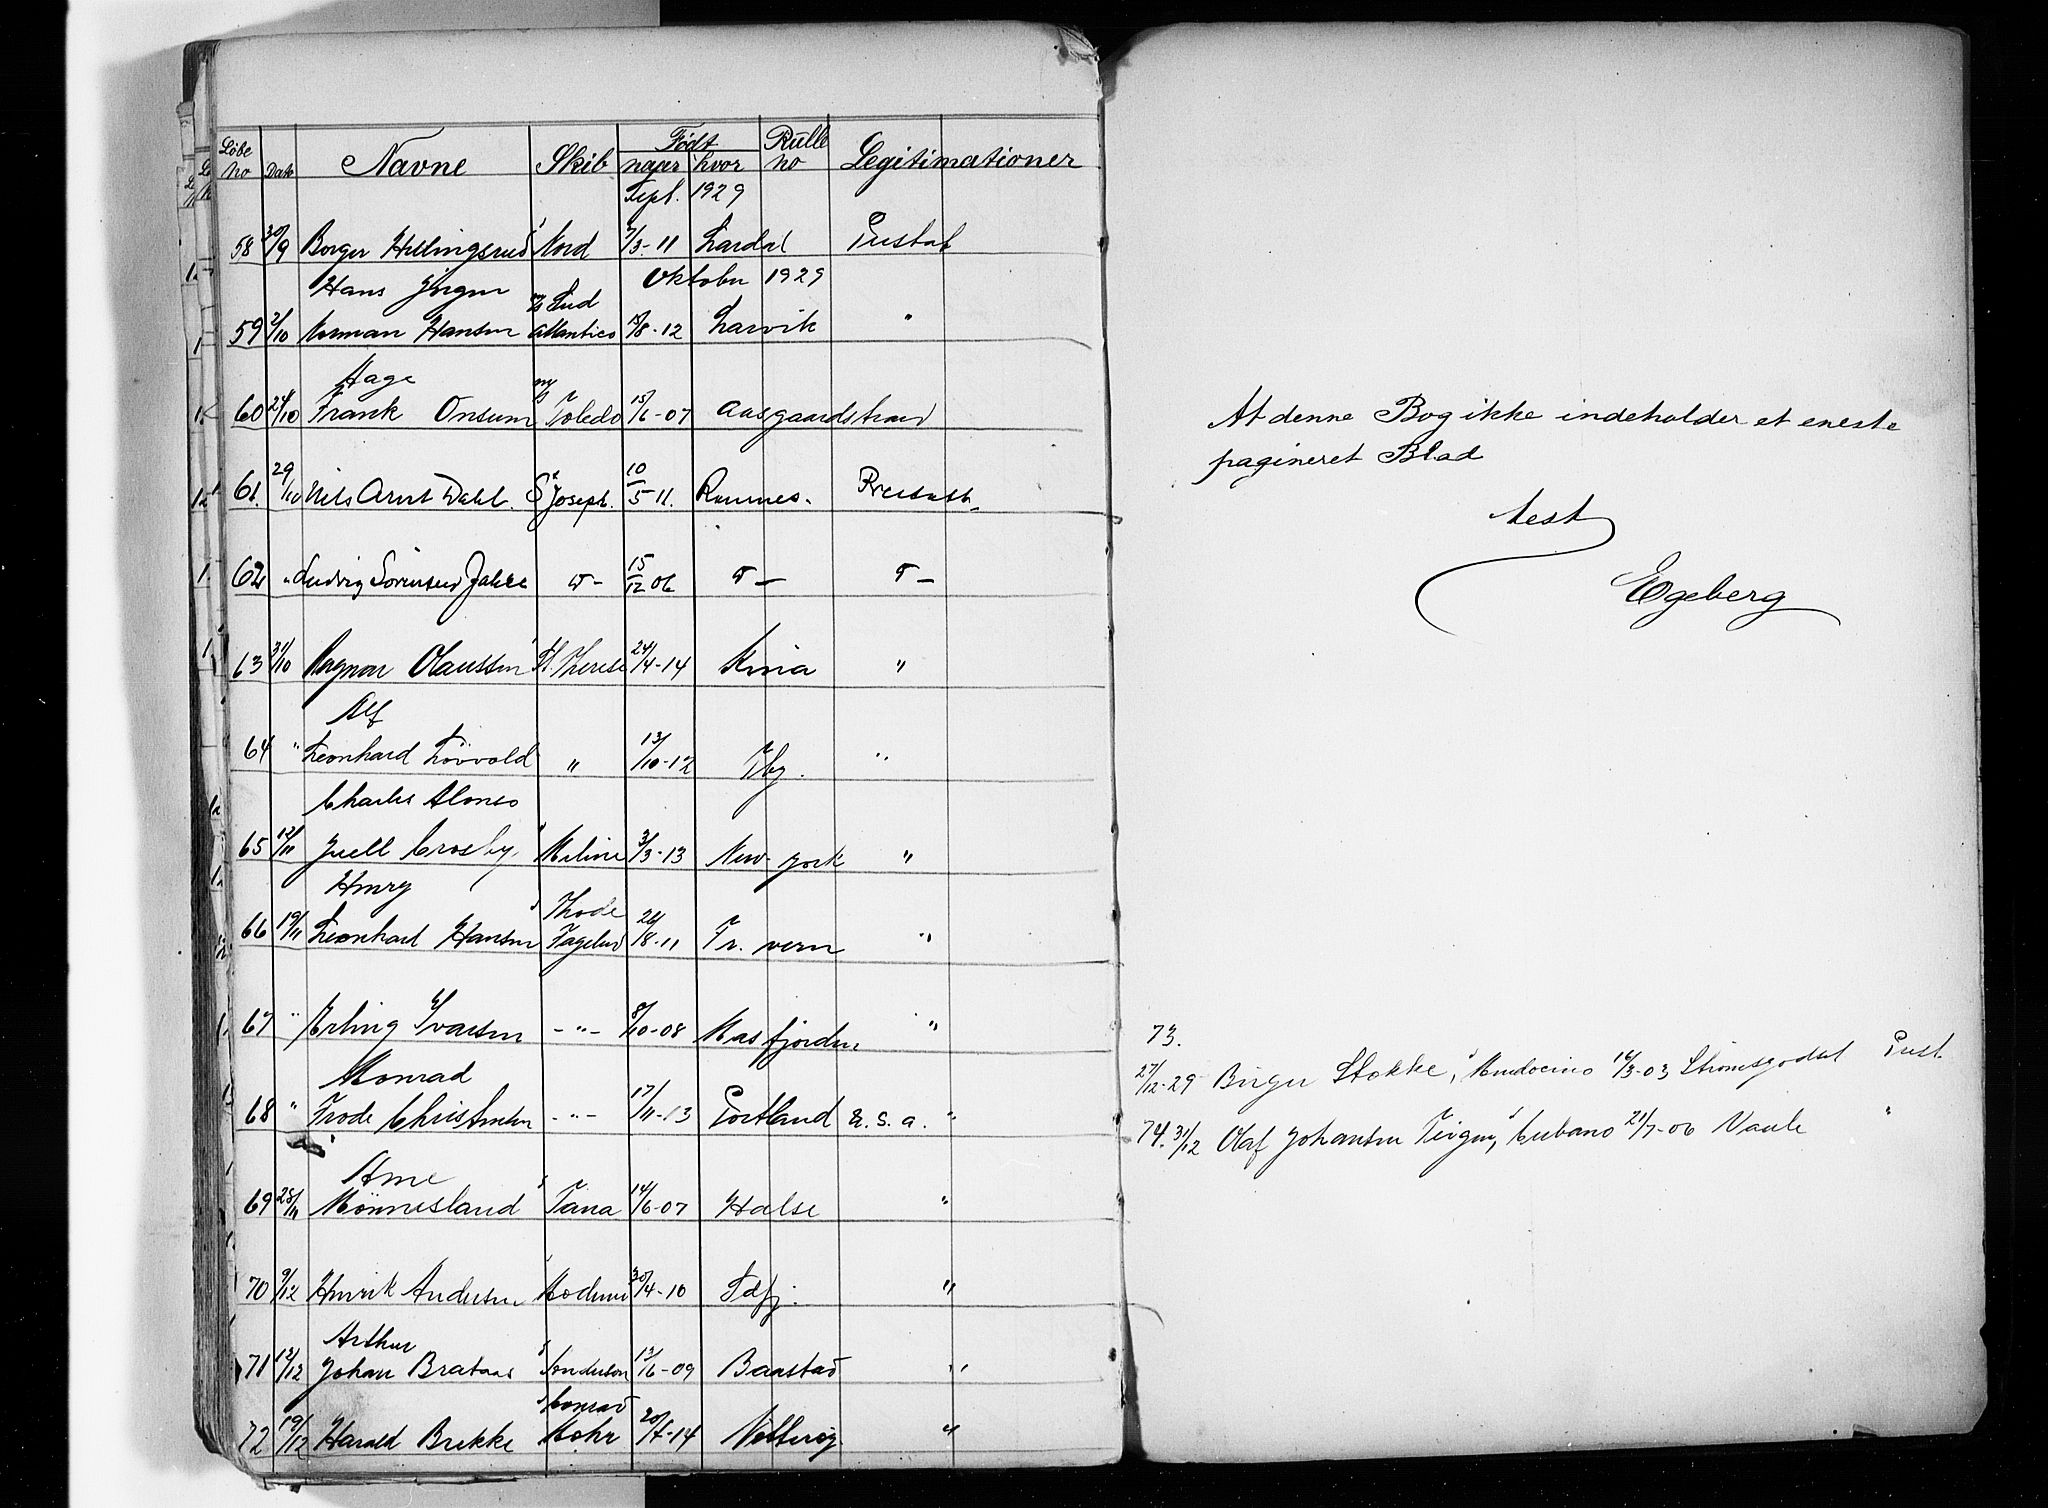 Løbe no Date Navne Skib Født naar hvor Rulle no Legitimationer
Sept. 1929
58 30/9 Borger Hillingsrud Nord 7/3-11 Lardal Prestat
Oktober 1929
Hans Jørgen
59 2/10 Norman Hansen m/s Sud Atlantico 18/8-12 Larvik "
Aage
60 24/10 Frank Onsum m/s Toledo 15/6-07 Aasgaardstrand
61. 29/10 Nils Arnt Dahl. St Joseph. 10/5 11. Ramnes. Prestatt.
62 " Ludvig Sörensen Jahre " - 15/12 06 " - " -
63 31/10 Ragnar Olaussen St. Therese 24/4-14 Kina "
Alf
64 " Leonhard Løvvold " 13/10-12 Tbg. "
Charles Alonso
65 12/11 Juell Crosby, Meline 3/3-13 New-york "
Henry
66 19/11 Leonhard Hansen Thode Fagelund 26/8-11 Fr. vern "
67 " Erling Ivarsen -"- 8/10-08 Masfjorden "
Monrad
68 " Frode Christensen -"- 17/11-13 Portland U.S.A. "
Arne
69 28/11 Mønnesland Tana 14/6-07 Halse "
70 9/12 Henrik Andersen 30/4-10 Tdfj. "
Arthur
71 12/12 Johan Brataas 13/6-09 Baastad "
72 19/12 Harald Brekke Conrad Mohr 14 Nøtterøy. "
At denne Bog ikke indeholder et eneste
pagineret Blad
test
Egeberg
73.
27/12-29 Birger Stokke, Mendocino 16/3-03 Strömsgodset Prest.
74. 31/12 Olaf Johansen Teigen, Cubano 21/7-06 Vaale "